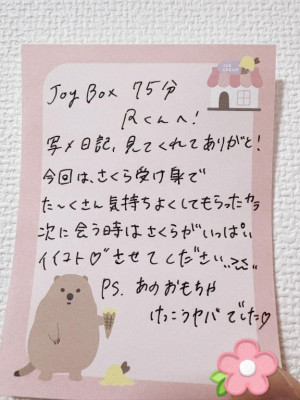 ICE CREAM
Joy Box 75分
Rくんへ!
写メ日記、見てくれてありがと!
今回は、さくら受け身で
た〜くさん気持ちよくしてもらったカラ
次に会う時はさくらがいっぱい
イイコト♡させてください
PS. あのおもちゃ
けっこうヤバでした♡